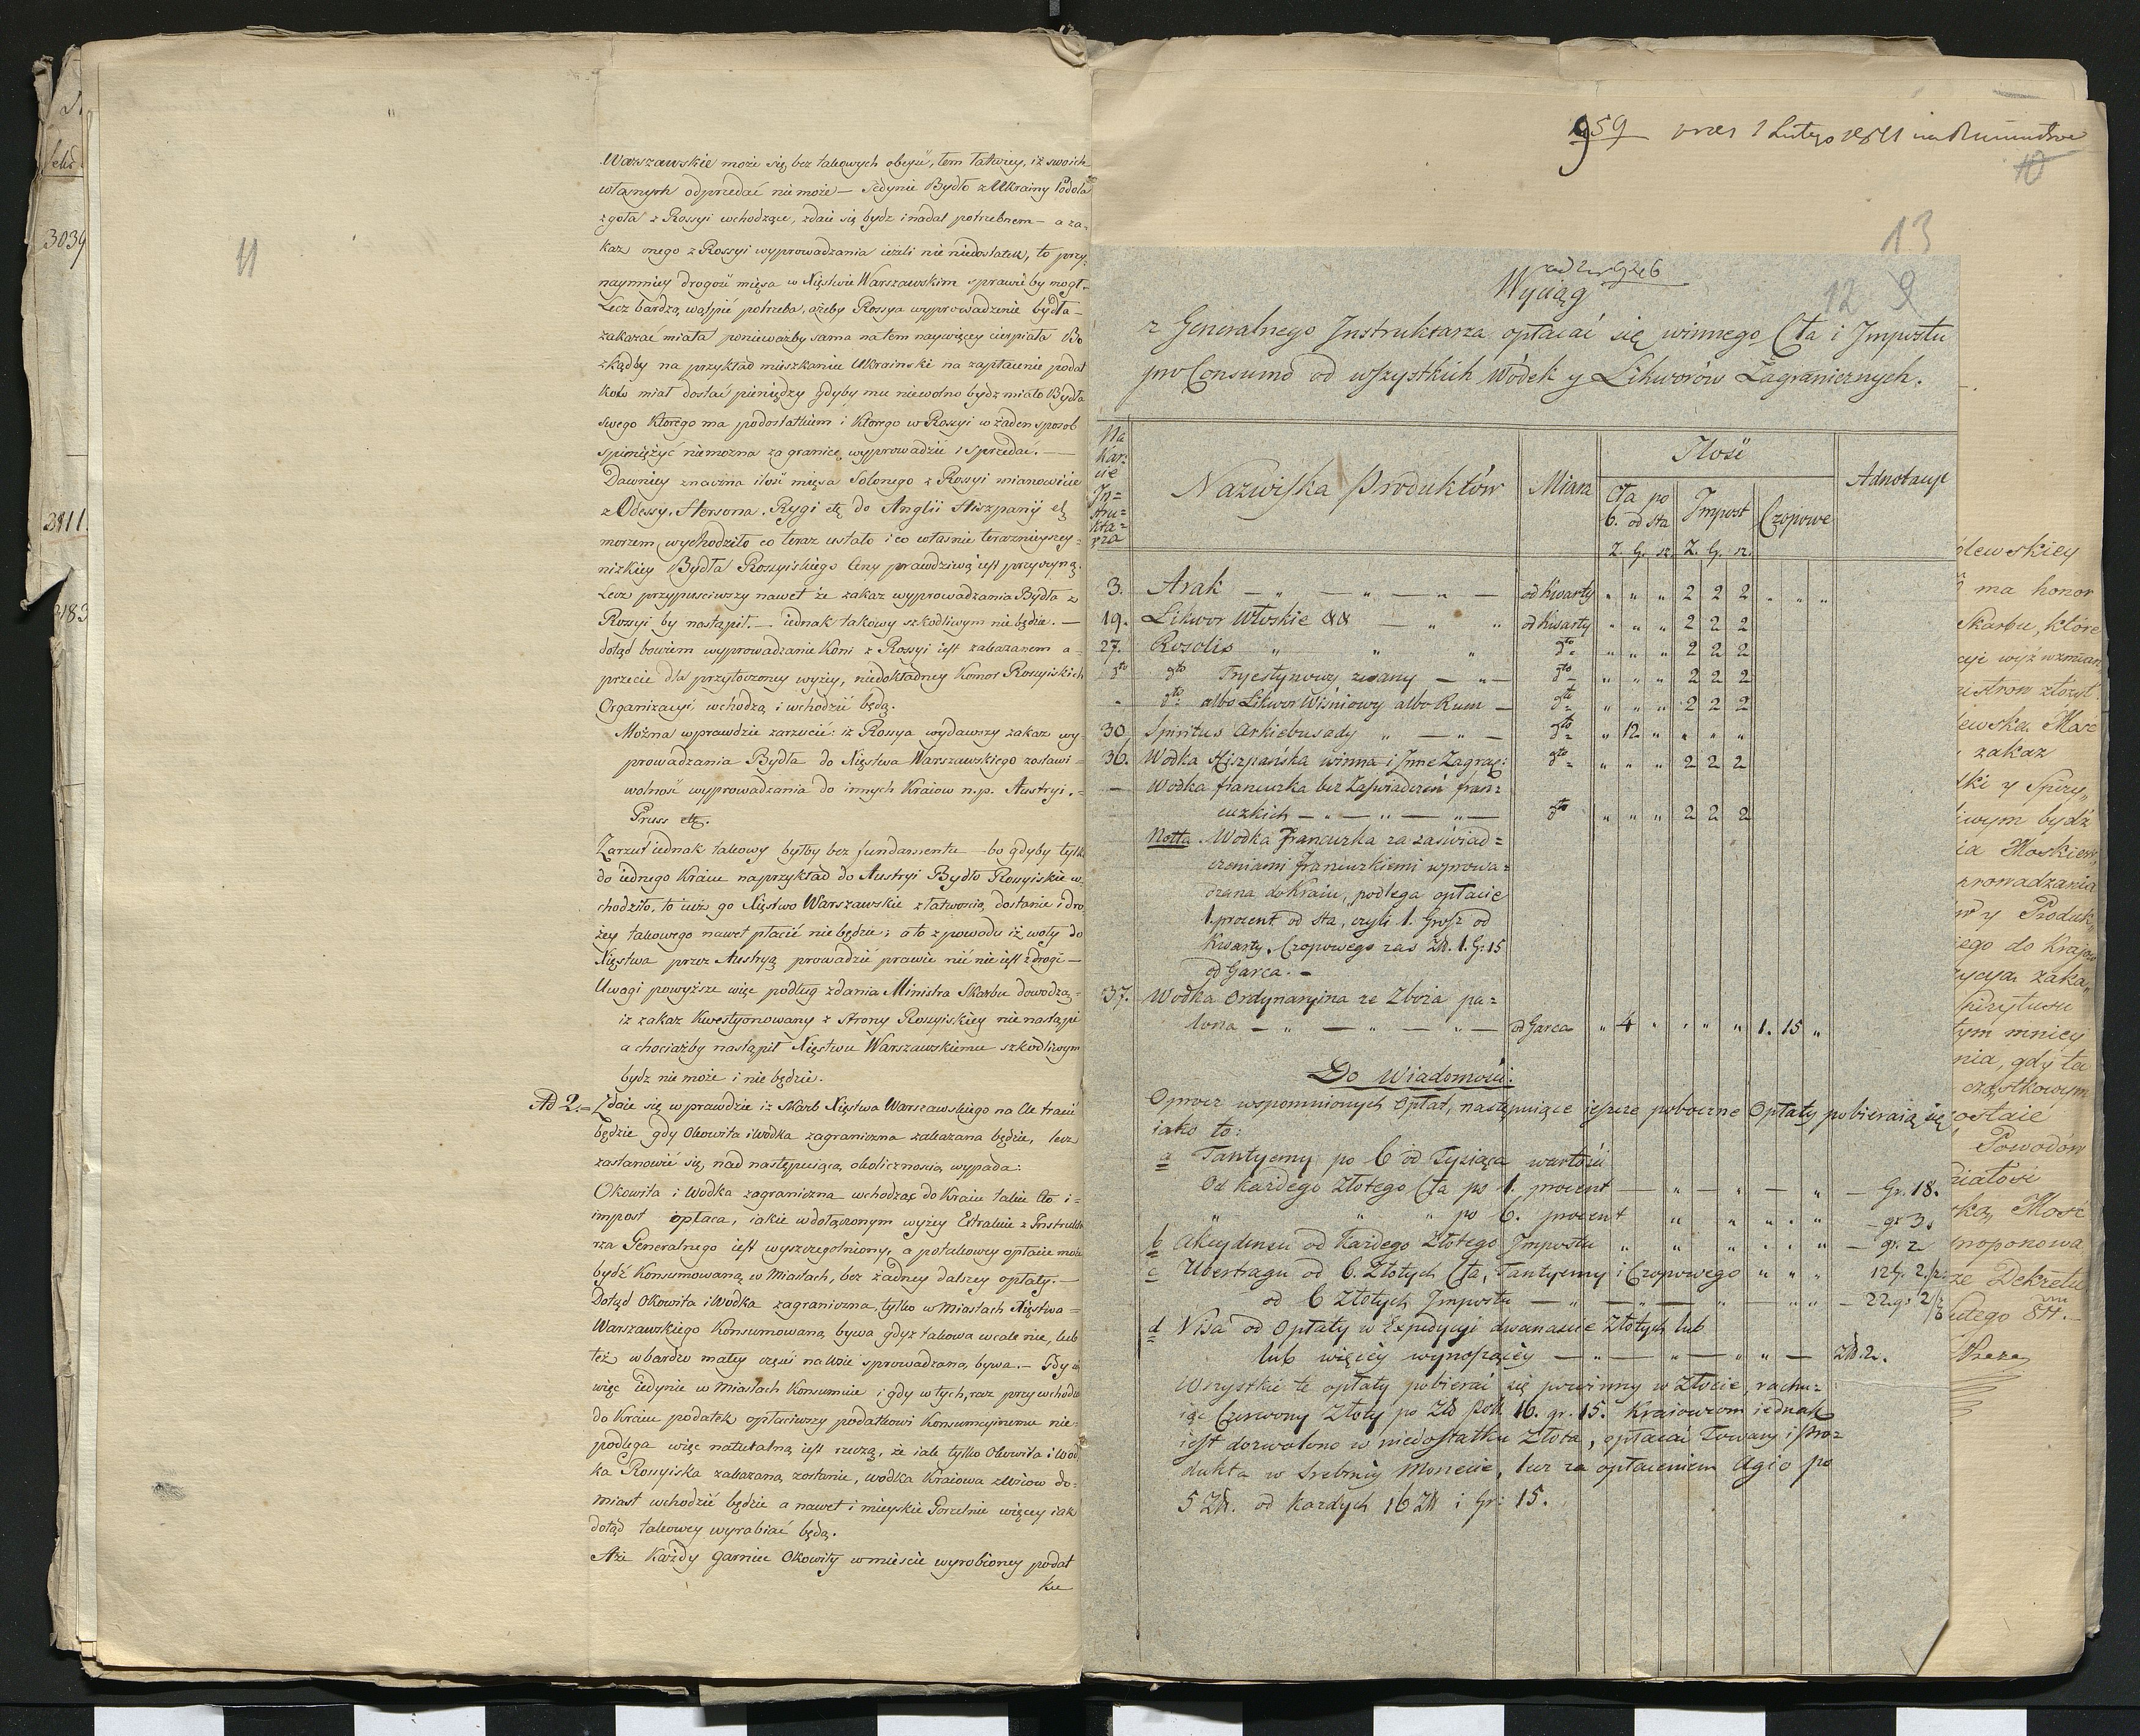 11
Warszawskie może się bez takowych obeyść, tem łatwiey, iż swoich
własnych odprzedać nie może — Jedynie Bydło z Ukrainy Podola
zgoła z Rossyi wchodzące, zdaie się bydz i nadal potrzebnem — a za-
kaz onego z Rossyi wyprowadzania ieżeli nie niedostatek, to przy-
naymniey drogość mięsa w Xięstwie Warszawskim sprawić by mogł.
Lecz bardzo wątpić potrzeba, ażeby Rossya wyprowadzenie bydła
zakazać miała ponieważby sama na tem naywięcey cierpiała Bo
zkądby na przykład mieszkaniec Ukrainski na zapłacenie podat
kow miał dostać pieniędzy gdyby mu niewolno bydz miało Bydła
swego ktorego ma podostatkiem i ktorego w Rossyi w żaden sposob
spieniężyć niemożna za granicę wyprowadzić i sprzedać. —
Dawniey znaczna ilość mięsa Solonego z Rossyi mianowicie
z Odessy, Hersona, Rygi etc do Anglii Hiszpanij etc
morzem wychodziło co teraz ustało i co własnie terazniyszey
nizkiey Bydła Rossyiskiego Ceny prawdziwą iest przyczyną.
Lecz przypuściwszy nawet że zakaz wyprowadzania Bydła z
Rossyi by nastąpił. — iednak takowy szkodliwym nie będzie. —
dotąd bowiem wyprowadzanie Koni z Rossyi iest zakazanem a
przecie dla przytoczoney wyżey, niedokładney Komor Rossyiskich
Organizacyi wchodzą i wchodzić będą.
Można wprawdzie zarzucić: iż Rossya wydawszy zakaz wy-
prowadzania Bydła do Xięstwa Warszawskiego zostawi
wolność wyprowadzania do innych Kraiow n.p. Austryi,
Pruss etc.
Zarzut iednak takowy byłby bez fundamentu — bo gdyby tylko
do iednego Kraiu naprzykład do Austryi Bydło Rossyiskie w-
chodziło, to iuż go Xięstwo Warszawskie z łatwością dostanie i dro
żey takowego nawet płacić nie będzie; a to z powodu iż woły do
Xięstwa przez Austryą prowadzić prawie nic nie iest z drogi —
Uwagi powyższe więc podług zdania Ministra Skarbu dowodzą,
iż zakaz kwestyonowany z strony Rossyiskiey nie nastąpi
a chociażby nastąpił Xięstwu Warszawskiemu szkodliwym
bydz nie może i nie będzie.
Ad 2. — Zdaie się wprawdzie iż Skarb Xięstwa Warszawskiego na Cle tracić
będzie gdy Okowita i Wodka zagraniczna zakazana będzie, lecz
zastanowić się nad następuiącą okolicznością wypada:
Okowita i Wodka zagraniczna wchodząc do Kraiu takie Cło i
impost opłaca, iakie w dołączonym wyżey Extrakcie z Instrukta
rza Generalnego iest wyszczegolniony, a po takowey opłacie może
bydź Konsumowaną w Miastach, bez żadney dalszey opłaty. —
Dotąd Okowita i Wodka zagraniczna, tylko w Miastach Xięstwa
Warszawskiego Konsumowaną bywa gdyż takowa wcale nie, lub
też w bardzo małey części na Wsie sprowadzaną bywa. — Gdy
więc iedynie w Miastach Konsumuie i gdy w tych, raz przy wchodzie
do Kraiu podatek opłaciwszy podatkowi Konsumcyinemu nie
podlega więc naturalną iest rzeczą, że iak tylko Okowita i Wod
ka Rossyiska zakazaną zostanie, wodka Kraiowa z Wsiow do
miast wchodzić będzie a nawet i mieyskie Gorzelnie więcey iak
dotąd takowey wyrabiać będą.
A że Każdy garniec Okowity w mieście wyrobioney podat
ku
959 1 Lutego 1811
10
13
ad 2 9246
12 9
Wyciąg
z Generalnego Instruktarza opłacać się winnego Cła i Impostu
pro Consumo od wszystkich Wódek y Likworów Zagranicznych.
Na Kar- cie In- stru- kta- rza
Nazwiska Produktów
Miara
Ilość
Adnotacye
Cła po 6. od sta
Impost
Czopowe
Z. G. sz. Z. G. sz.
3. Arak — „ — „ — „ — od Kwarty „ „ „ 2 2 2 „ „ „
19. Likwor Włoskie — „ „ od Kwarty „ „ „ 2 2 2
27. Rosolis „ „ „ dto „ „ „ 2 2 2
dto dto Tryestynowy zwany — „ — dto „ „ „ 2 2 2
„ dto albo Likwor Wiśniowy albo Rum — dto „ „ „ 2 2 2
30. Spiritus Arkiebusady „ — „ — dto „ 12 „ „ „ „
36. Wodka Hiszpańska winna i Inne Zagrag: dto „ „ „ 2 2 2
— Wodka francuzka bez Zaświadczeń fran=
cuzkich — „ — „ — „ — dto „ „ „ 2 2 2
Notta. Wodka Francuzka za zaświad=
czeniami francuzkiemi wprowa=
dzana do Kraiu, podlega opłacie
1. procent od sta, czyli 1. Grosz od
Kwarty. Czopowego zas Zł. 1. Gr 15
od Garca. —
37. Wodka Ordynaryina ze Zboża pa=
lona — „ — „ — „ — od Garca „ 4 „ „ „ „ 1. 15 „
Do Wiadomości:
Oprocz wspomnionych Opłat, następuiące ieszcze poboczne Opłaty pobieraią się
iako to:
a Tantyemy po 6 od Tysiąca wartości
Od każdego Złotego Cła po 1. procent — „ — „ — „ — Gr. 18.
„ „ „ po 6. procent „ „ „ „ — gr 3.
b Akcydensu od Każdego Złotego Impostu „ „ „ „ „ — gr. 2
c Ubertragu od 6. Złotych Cła, Tantyemy i Czopowego „ „ „ 12 g. 2/
od 6 Złotych Impostu — „ — „ — „ — „ — 22 gr 2/
d Visa od Opłaty w Expedycyi dwanascie Złotych lub
lub więcey wynoszącey — „ — „ — „ „ — Zł. 2.
Wszystkie te opłaty pobierać się powinny w Złocie, rachu=
iąc Czerwony Złoty po Zł Pol. 16. gr. 15. Kraiowcom iednak
iest dozwolono w niedostatku Złota, opłacać Towary i Pro=
dukta w Srebrney Monecie, lecz za opłaceniem Agio po
5 Zł. od każdych 16 Zł i Gr: 15.
3034
2911
2183
olewskiey
ma honor
Skarbu, które
zakaz
ki y Spiry„
iwym bydź
ia Moskiew
prowadzania
y Produk„
iego do Krajow
zaka„
spirytusu
tym mniey
nia, gdy ta
cząstkowym
ostaie
Powodów
ką Mość
proponowa
ze Dekretu
utego 811. —